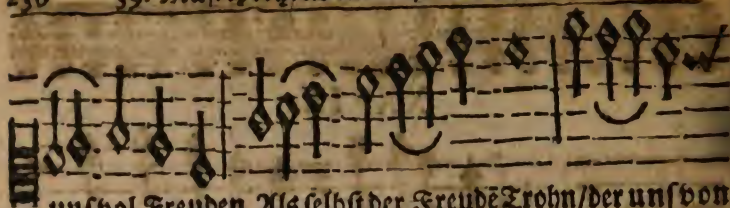 unſ vol Freuden Als ſelbſt der Freudē Trohn/der unſ von